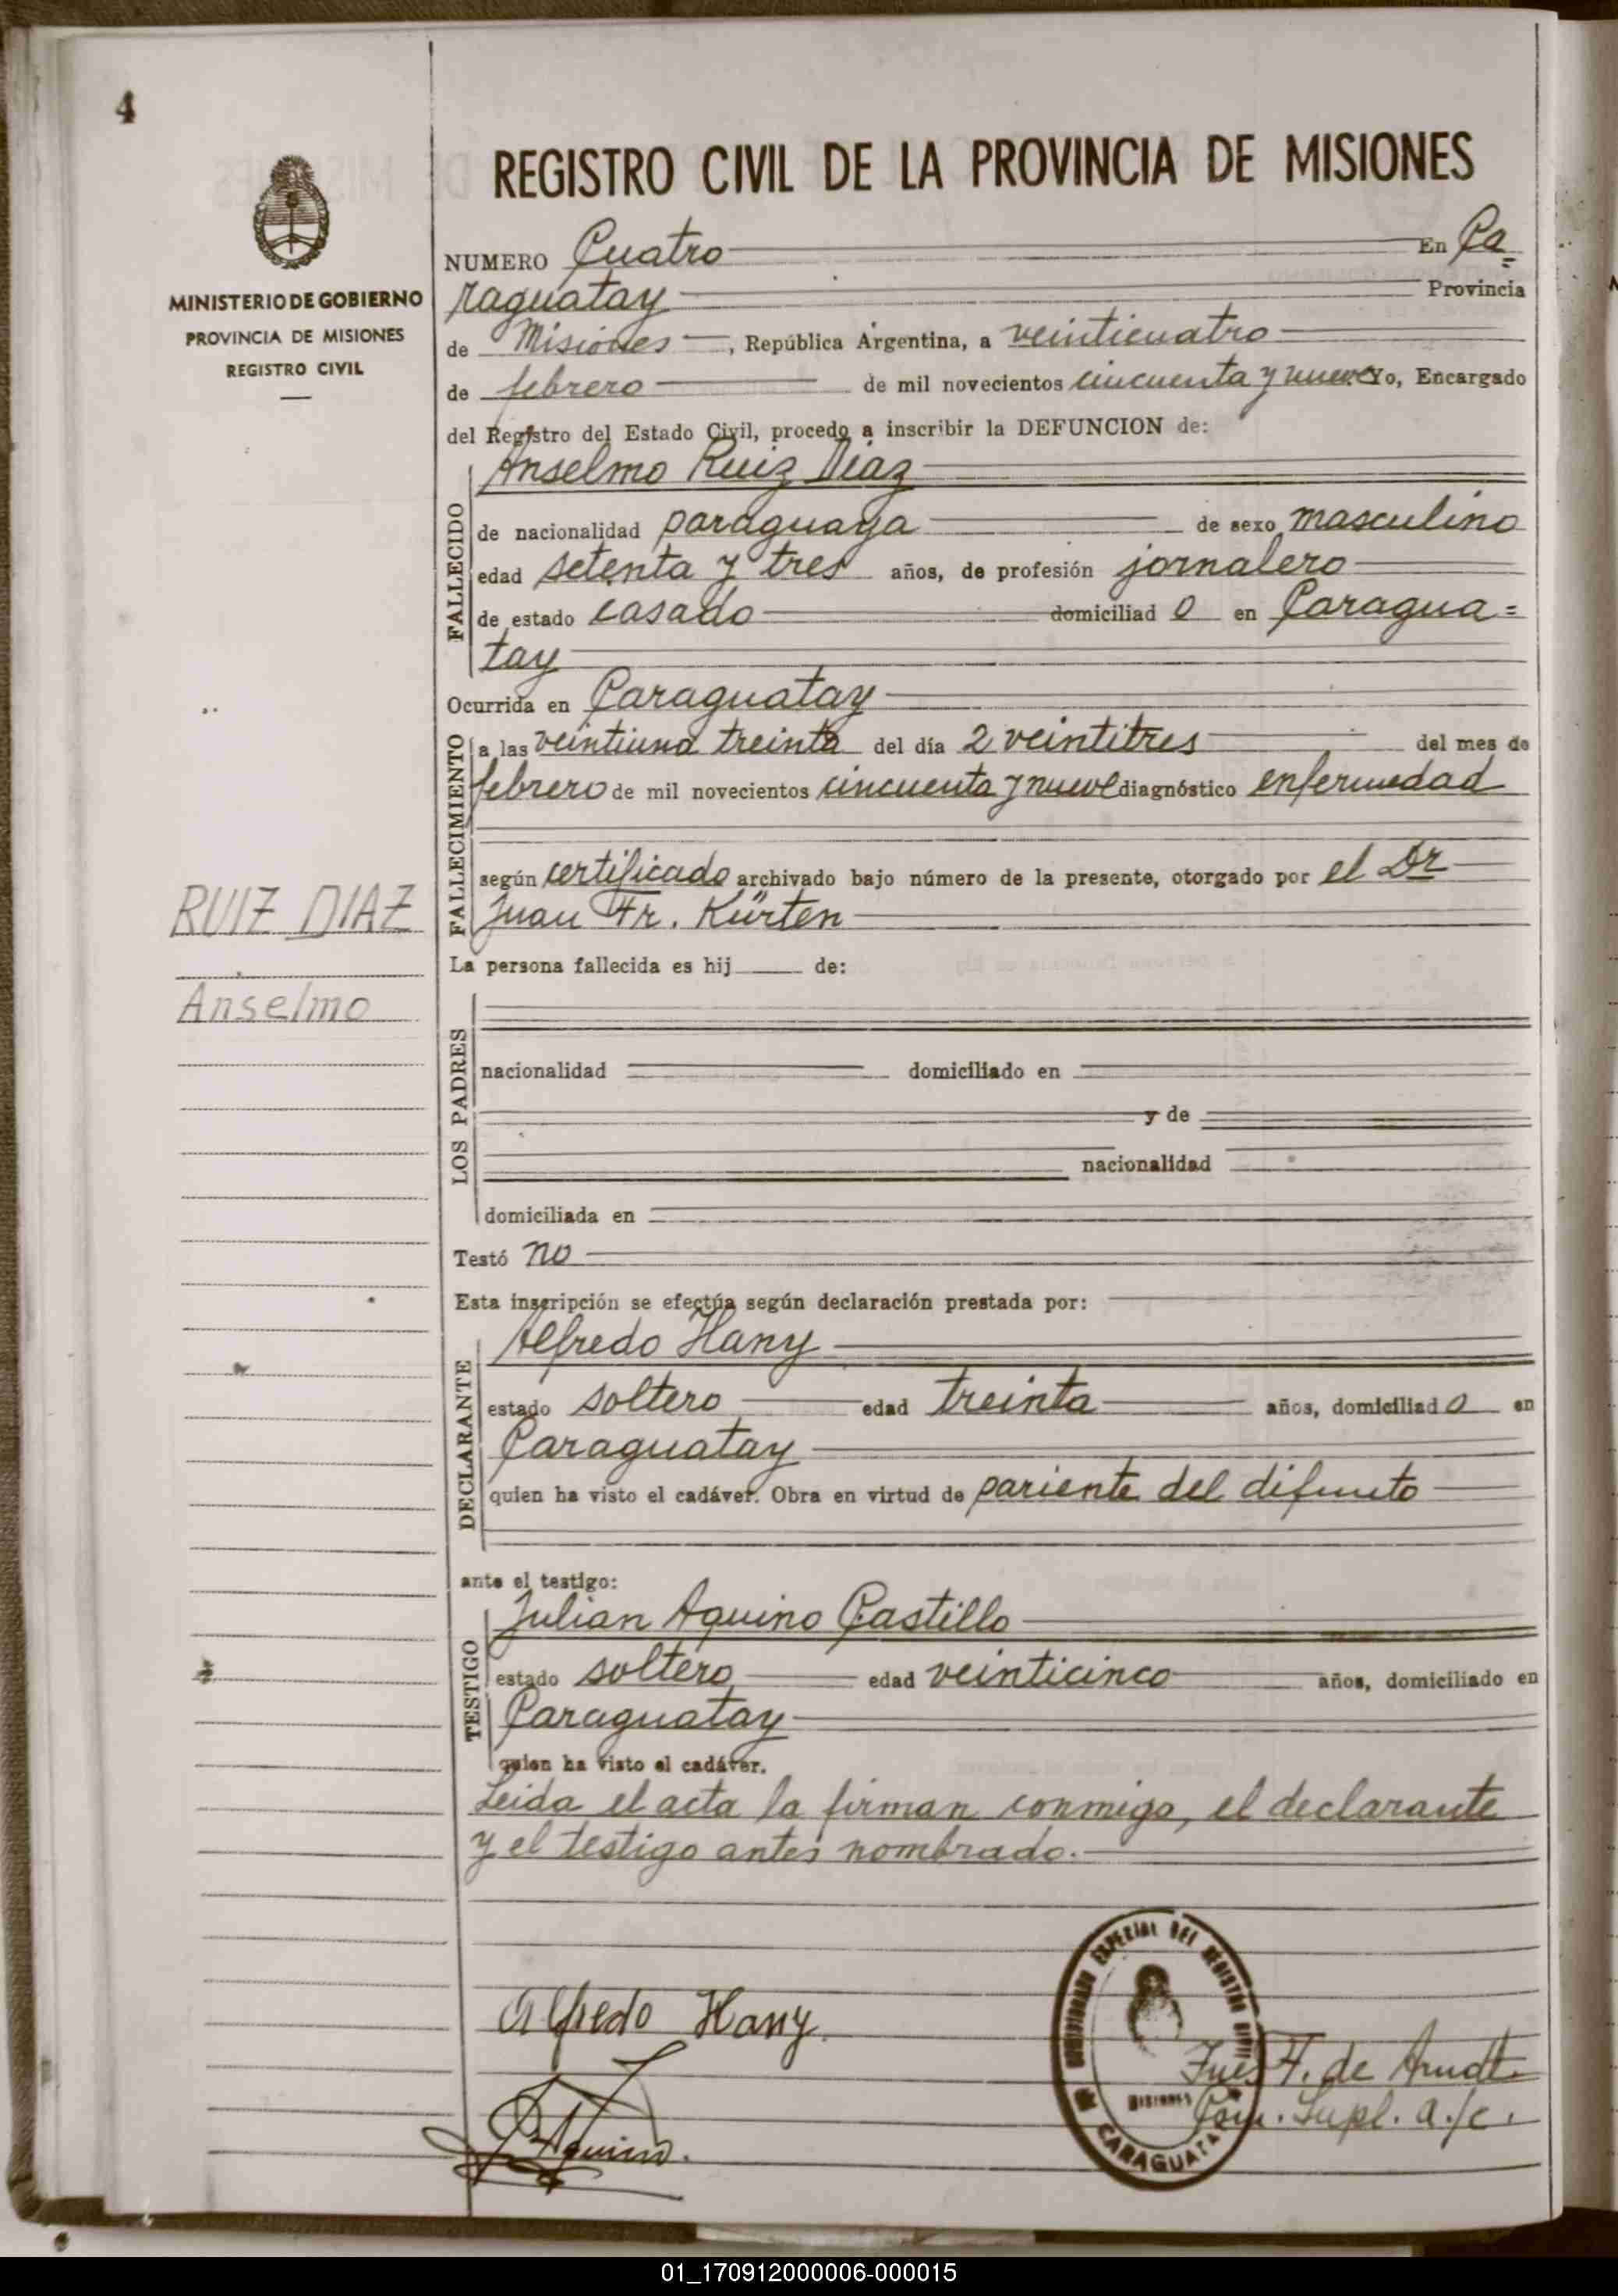 4
REGISTRO CIVIL DE LA PROVINCIA DE MISIONES
MINISTERIO DE GOBIERNO
PROVINCIA DE MISIONES
REGISTRO CIVIL
NUMERO Cuatro En Ca
raguatay Provincia
de Misiones, República Argentina, a veinticuatro
de febrero de mil novecientos cincuenta y nueve Yo, Encargado
del Registro del Estado Civil, procedo a inscribir la DEFUNCION de:
FALLECIDO
Anselmo Ruiz Diaz
de nacionalidad paraguaya de sexo masculino
edad setenta y tres años, de profesión jornalero
de estado casado domiciliado en Caragua=
tay
Ocurrida en Caraguatay
FALLECIMIENTO
a las veintiuna treinta del día 2 veintitres del mes de
febrero de mil novecientos cincuenta y nueve diagnóstico enfermedad
según certificado archivado bajo número de la presente, otorgado por el Dr
Juan Fr. Kürten
RUIZ DIAZ
Anselmo
La persona fallecida es hij de:
LOS PADRES
nacionalidad domiciliado en
y de
nacionalidad
domiciliada en
Testó no
Esta inscripción se efectúa según declaración prestada por:
DECLARANTE
Alfredo Hany
estado soltero edad treinta años, domiciliado en
Caraguatay
quien ha visto el cadáver. Obra en virtud de pariente del difunto
ante el testigo:
TESTIGO
Julian Aquino Castillo
estado soltero edad veinticinco años, domiciliado en
Caraguatay
quien ha visto el cadáver.
Leida el acta la firman conmigo, el declarante
y el testigo antes nombrado.
Alfredo Hany
Aquino
ESPECIAL DEL REGISTRO CIVIL
MISIONES
CARAGUATAY
F. de Arndt
Com. Supl. a./c.
01_170912000006-000015